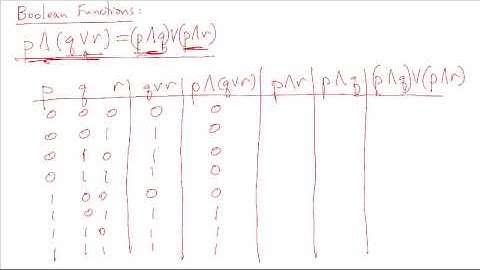 Boolean Functions:
p∧(q∨r)=(p∧q)∨(p∧r)
p q r q∨r p∧(q∨r) p∧r p∧q (p∧q)∨(p∧r)
0 0 0 0 0
0 0 1 1 0
0 1 0 1 0
0 1 1 1 0
1 0 0 0 0
1 0 1 1 1
1 1 0 1 1
1 1 1 1 1